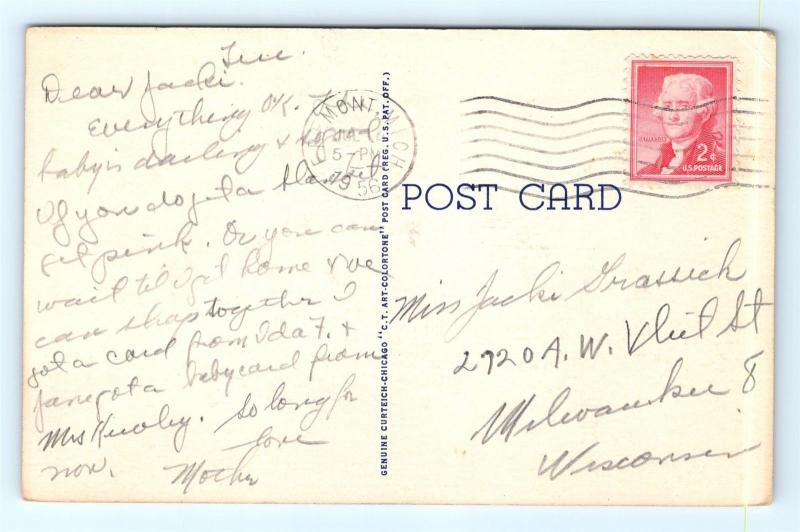 Tue.
Dear Jacki.
Everything OK. The
baby's darling &
If you do get a blanket
get pink. Or you can
wait til I get home & we
can shop together I
got a card from Ida F. &
Jane got a baby card from
Mrs So long for
now. love
Mother
GENUINE CURTEICH-CHICAGO "C.T. ART-COLORTONE" POST CARD (REG. U.S. PAT. OFF.)
MONT MICH
5 - PM
1956
2¢
U.S. POSTAGE
POST CARD
Miss Jacki Grassick
2720 A. W. Vliet St
Milwaukee 8
Wisconsin